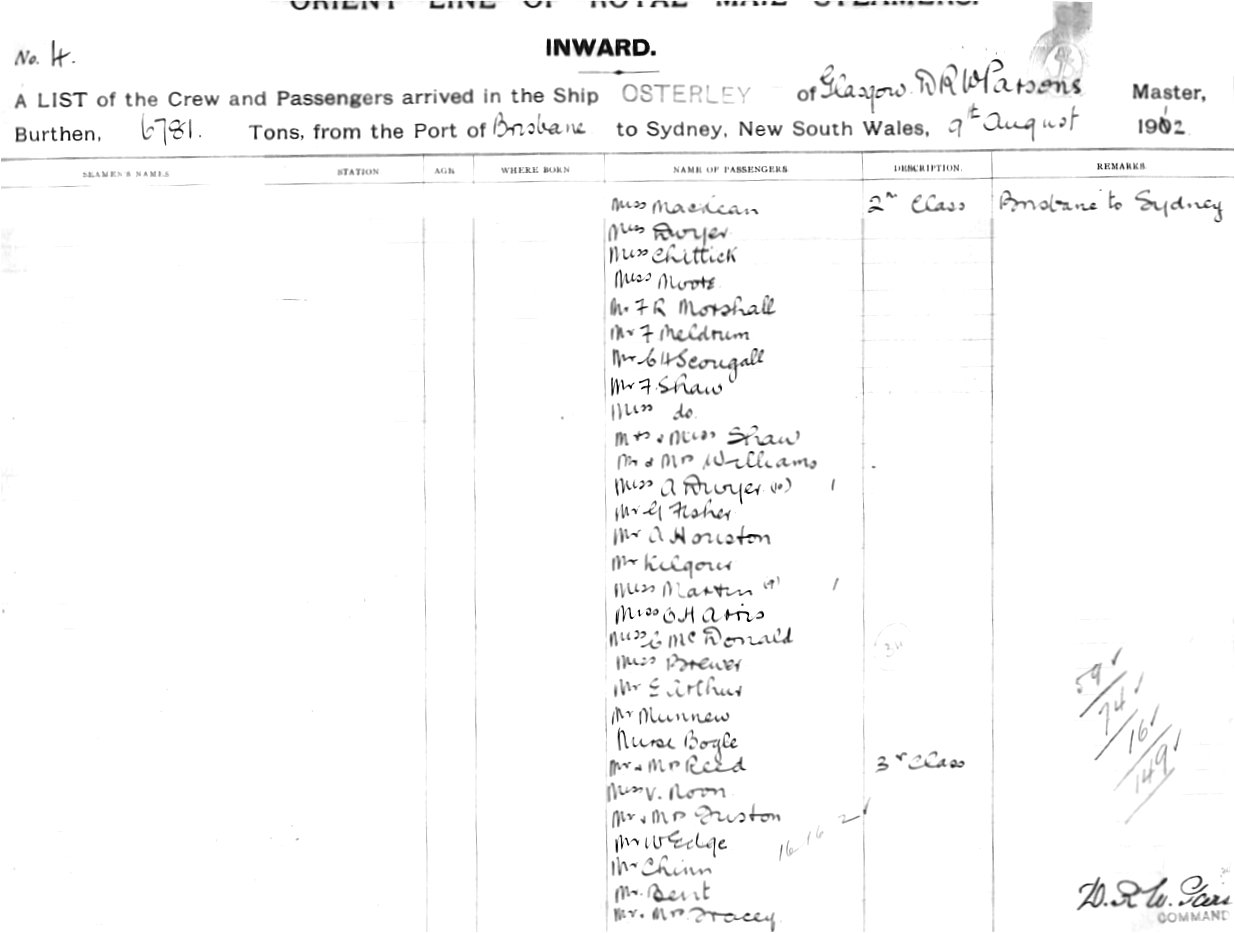 ORIENT LINE OF ROYAL MAIL STEAMERS.
INWARD.
No. 4.
A LIST of the Crew and Passengers arrived in the Ship OSTERLEY of Glasgow. D R W Parsons Master,
Burthen, 6781. Tons, from the Port of Brisbane to Sydney, New South Wales, 9th August 1912
SEAMEN'S NAMES STATION AGE WHERE BORN NAME OF PASSENGERS DESCRIPTION. REMARKS
Miss Maclean 2nd Class Brisbane to Sydney
Miss Dwyer
Miss Chittick
Miss Moore
Mr F R Morshall
Mr F Meldrum
Mr C H Scougall
Mr F. Shaw
Miss do.
Mrs & Miss Shaw
Mr & Mrs Williams
Miss A Dwyer (10) 1
Mr G Fisher
Mr A Houston
Mr Kilgour
Miss Martin (9) 1
Miss O Harris
Miss C McDonald
Miss Brewer
Mr E Arthur
Mr Munnew
Nurse Bogle
Mr & Mrs Reed 3rd Class
Miss V. Noon
Mr & Mrs Fuston
Mr W Edge 16 16 2
Mr Chinn
Mr. Bent
Mr. Mrs Tracey
59
74
16
149
D. R. W.
COMMAND